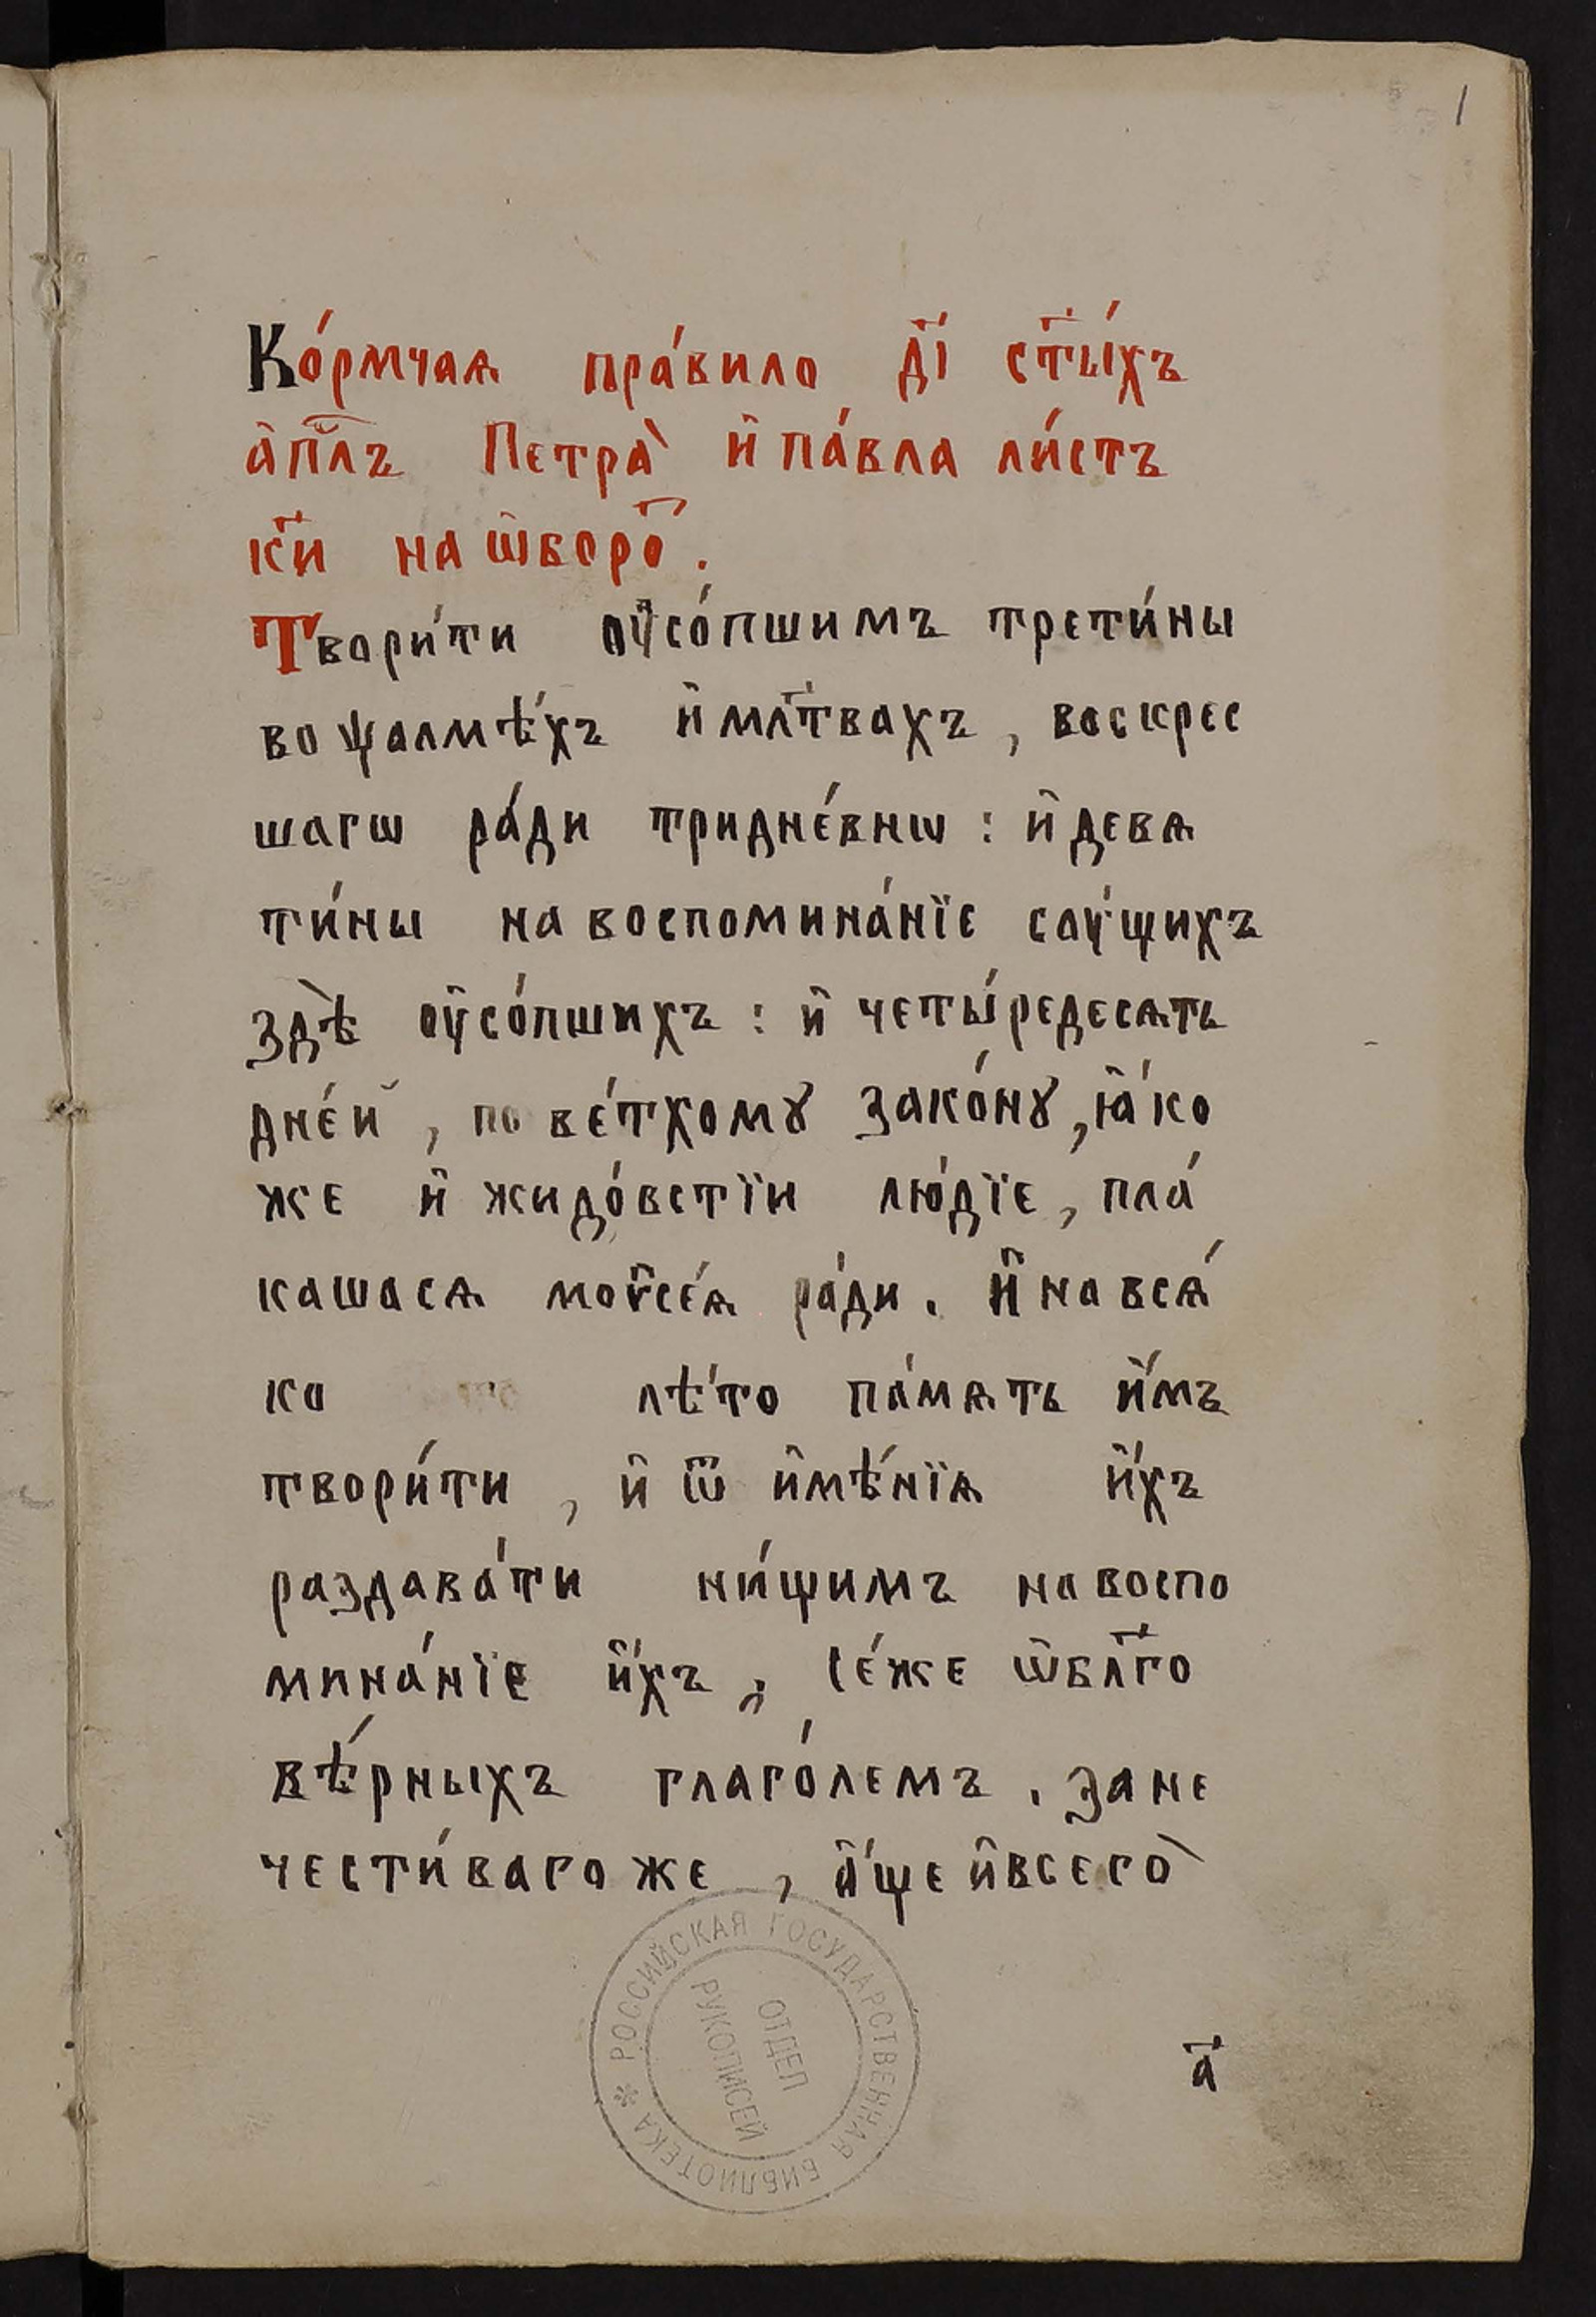 1
Ко́рмчаѧ пра́вило д҃і ст҃ы́хъ
а҆пⷭ҇лъ Петра̀ и҆ па́вла ли́стъ
к҃и на ѿборо́т.
Твори́ти оу҆со́пшимъ трети́ны
во ѱалмѣ́хъ и҆ мл҃твахъ, воскрес
шагѡ ра́ди тридне́внѡ : и҆ девѧ
ти́ны на воспомина́нїе соу́щихъ
здѣ̀ оу҆со́пшихъ : и҆ четы́редесѧть
дне́й, по ве́тхомꙋ зако́нꙋ, ꙗ҆́ко
же и҆ жидо́встїи лю́дїе, пла́
кашасѧ моѵ҆се́ѧ ра́ди. И҆ на всѧ́
ко лѣ́то па́мѧть и҆́мъ
твори́ти, и҆ ѿ и҆мѣ́нїѧ и҆́хъ
раздава́ти ни́щимъ на воспо
мина́нїе и҆́хъ ; се́же ѿ бл҃го
вѣ́рныхъ глаго́лемъ. зане
чести́ваго же, а҆́ще и҆ всего̀
а҃
РОССИЙСКАЯ ГОСУДАРСТВЕННАЯ БИБЛИОТЕКА *
ОТДЕЛ
РУКОПИСЕЙ